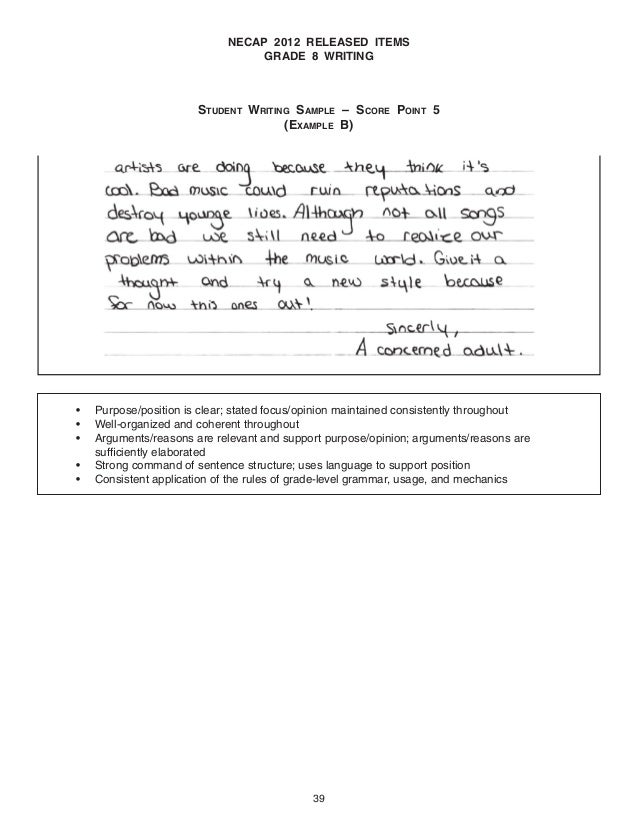 NECAP 2012 RELEASED ITEMS
GRADE 8 WRITING
STUDENT WRITING SAMPLE – SCORE POINT 5
(EXAMPLE B)
artists are doing because they think it's
cool. Bad music could ruin reputations and
destroy younge lives. Although not all songs
are bad we still need to realize our
problems within the music world. Give it a
thought and try a new style because
for now this ones out!
Sincerly,
A concerned adult.
• Purpose/position is clear; stated focus/opinion maintained consistently throughout
• Well-organized and coherent throughout
• Arguments/reasons are relevant and support purpose/opinion; arguments/reasons are
sufficiently elaborated
• Strong command of sentence structure; uses language to support position
• Consistent application of the rules of grade-level grammar, usage, and mechanics
39